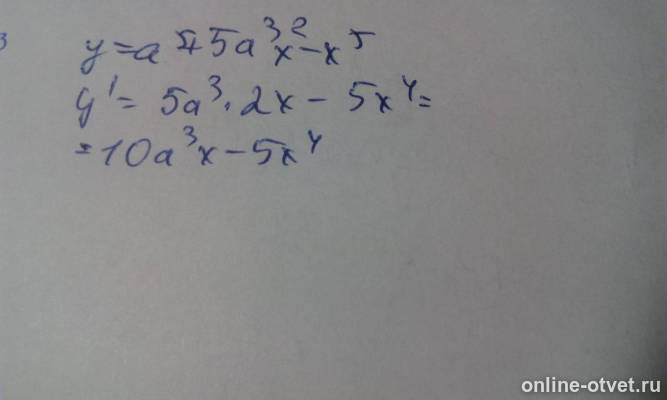 3
y = a⁵ + 5a³x² - x⁵
y' = 5a³ · 2x - 5x⁴ =
= 10a³x - 5x⁴
online-otvet.ru